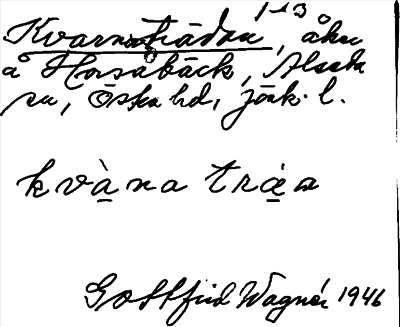 Kvarnaträdan, åker
å Horsabäck, Alseda
sn, Östra hd, jönk. l.
kvàna träa
Gottfrid Wagnér 1946